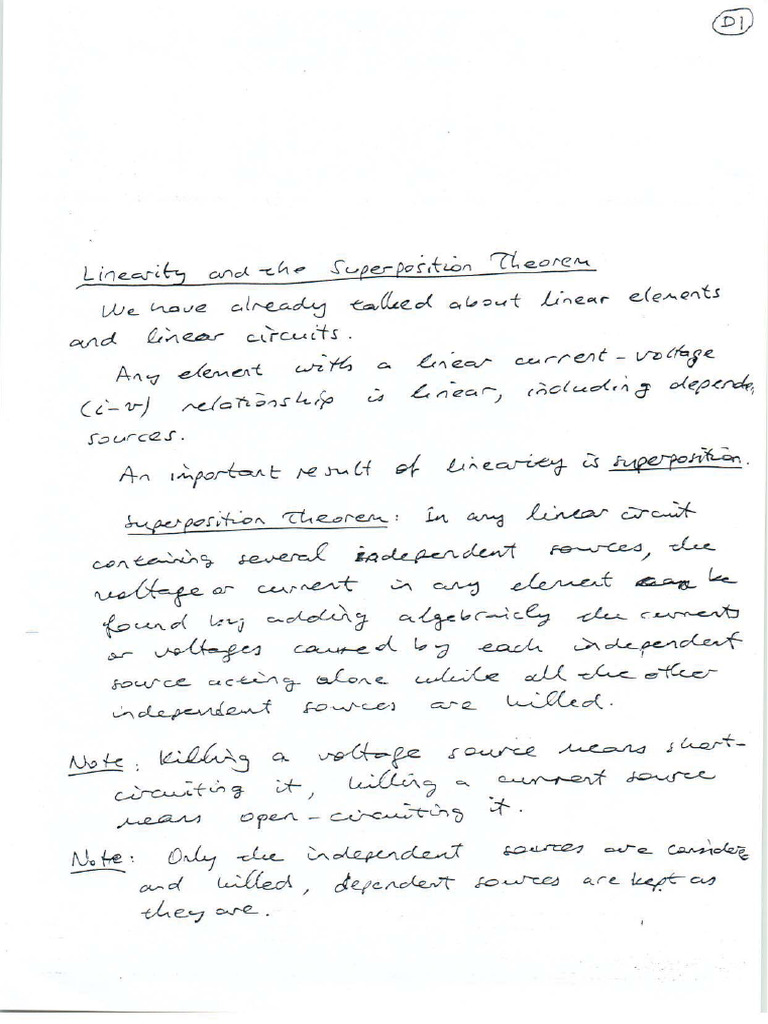 D1
Linearity and the Superposition Theorem
We have already talked about linear elements
and linear circuits.
Any element with a linear current-voltage
(i-v) relationship is linear, including depende
sources.
An important result of linearity is superposition.
Superposition Theorem: In any linear circuit
containing several independent sources, the
voltage or current in any element can be
found by adding algebraicly the currents
or voltages caused by each independent
source acting alone while all the other
independent sources are killed.
Note: Killing a voltage source means short-
circuiting it, killing a current source
means open-circuiting it.
Note: Only the independent sources are considere
and killed, dependent sources are kept as
they are.